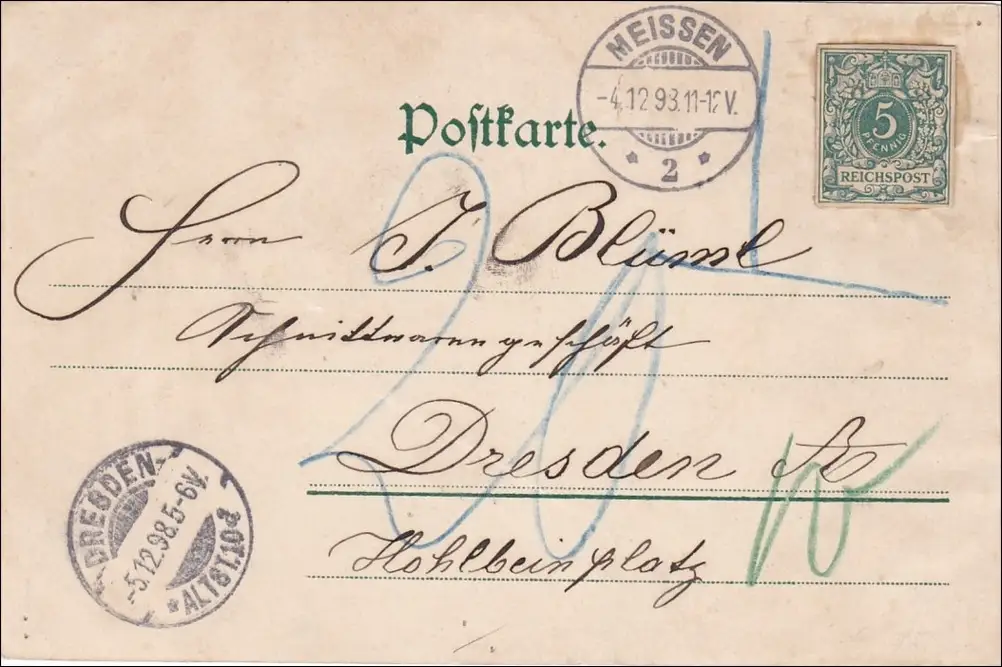 MEISSEN
-4.12.98.11-12V.
* 2 *
5
PFENNIG
REICHSPOST
Postkarte.
Herrn J. Blüml
Schnittwarengeschäft
Dresden A
Hohlbeinplatz
20
DRESDEN-
-5.12.98.5-6V.
* ALTST.10 d